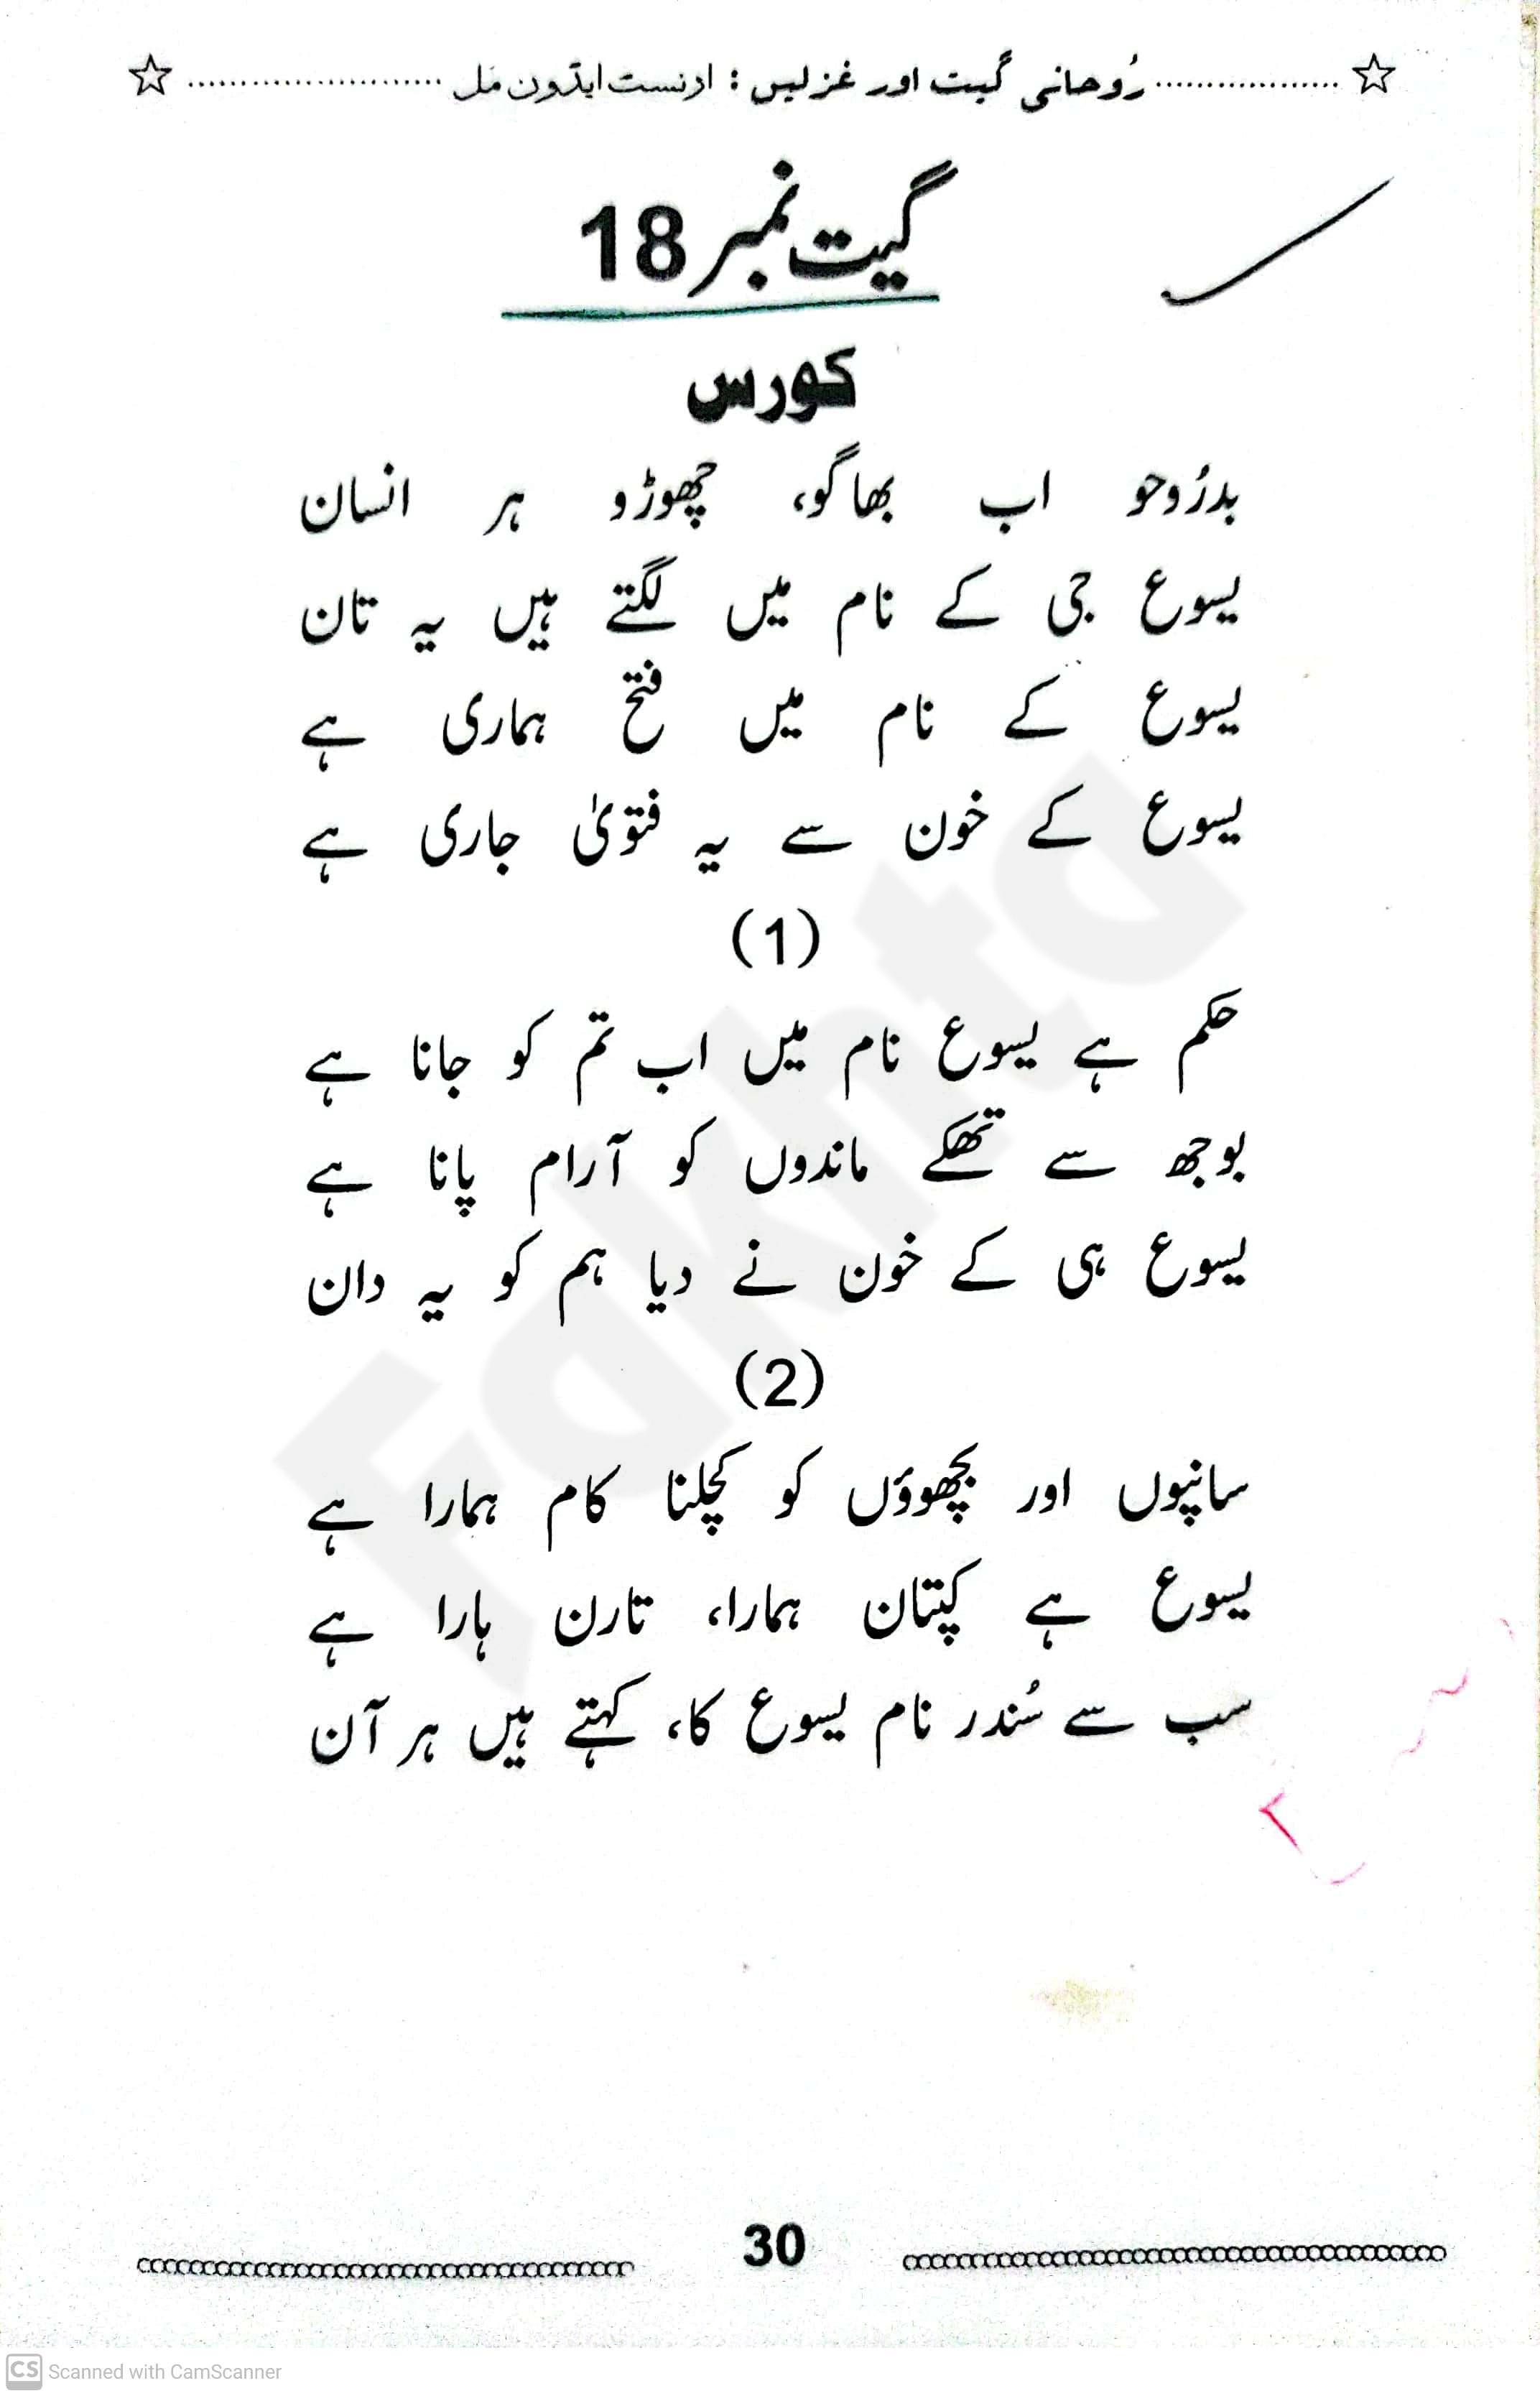 ☆ ................... رُوحانی گیت اور غزلیں : ارنسٹ ایڈون مَل ......................... ☆
گیت نمبر 18
کورس
بدرُوحو اب بھاگو، چھوڑو ہر انسان
یسوع جی کے نام میں لگتے ہیں یہ تان
یسوع کے نام میں فتح ہماری ہے
یسوع کے خون سے یہ فتویٰ جاری ہے
(1)
حکم ہے یسوع نام میں اب تم کو جانا ہے
بوجھ سے تھکے ماندوں کو آرام پانا ہے
یسوع ہی کے خون نے دیا ہم کو یہ دان
(2)
سانپوں اور بچھوؤں کو کچلنا کام ہمارا ہے
یسوع ہے کپتان ہمارا، تارن ہارا ہے
سب سے سُندر نام یسوع کا، کہتے ہیں ہر آن
30
Fakhta
CS Scanned with CamScanner